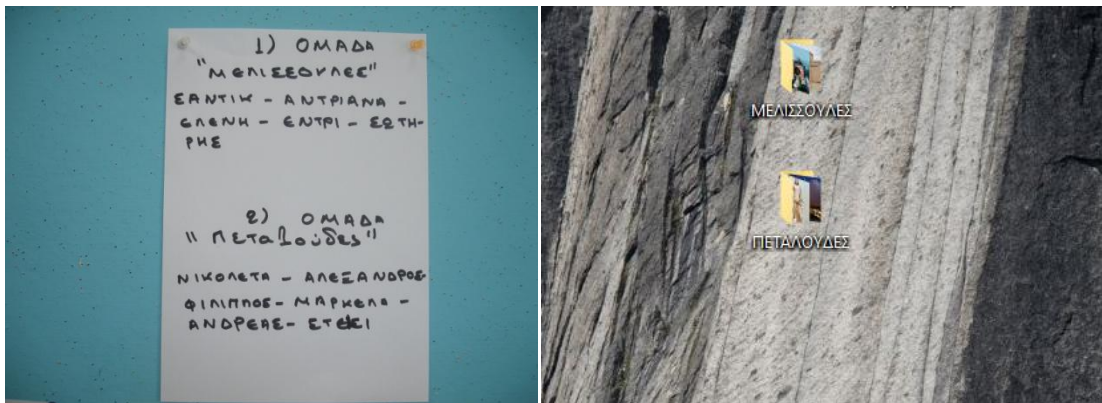 1) ΟΜΑΔΑ
"ΜΕΛΙΣΣΟΥΛΕΣ"
ΣΑΝΤΙΚ - ΑΝΤΡΙΑΝΑ -
ΕΛΕΝΗ - ΕΝΤΡΙ - ΣΩΤΗ-
ΡΗΣ
2) ΟΜΑΔΑ
"Πεταλούδες"
ΝΙΚΟΛΕΤΑ - ΑΛΕΞΑΝΔΡΟΣ-
ΦΙΛΙΠΠΟΣ - ΜΑΡΚΕΛΑ -
ΑΝΔΡΕΑΣ -
ΜΕΛΙΣΣΟΥΛΕΣ
ΠΕΤΑΛΟΥΔΕΣ